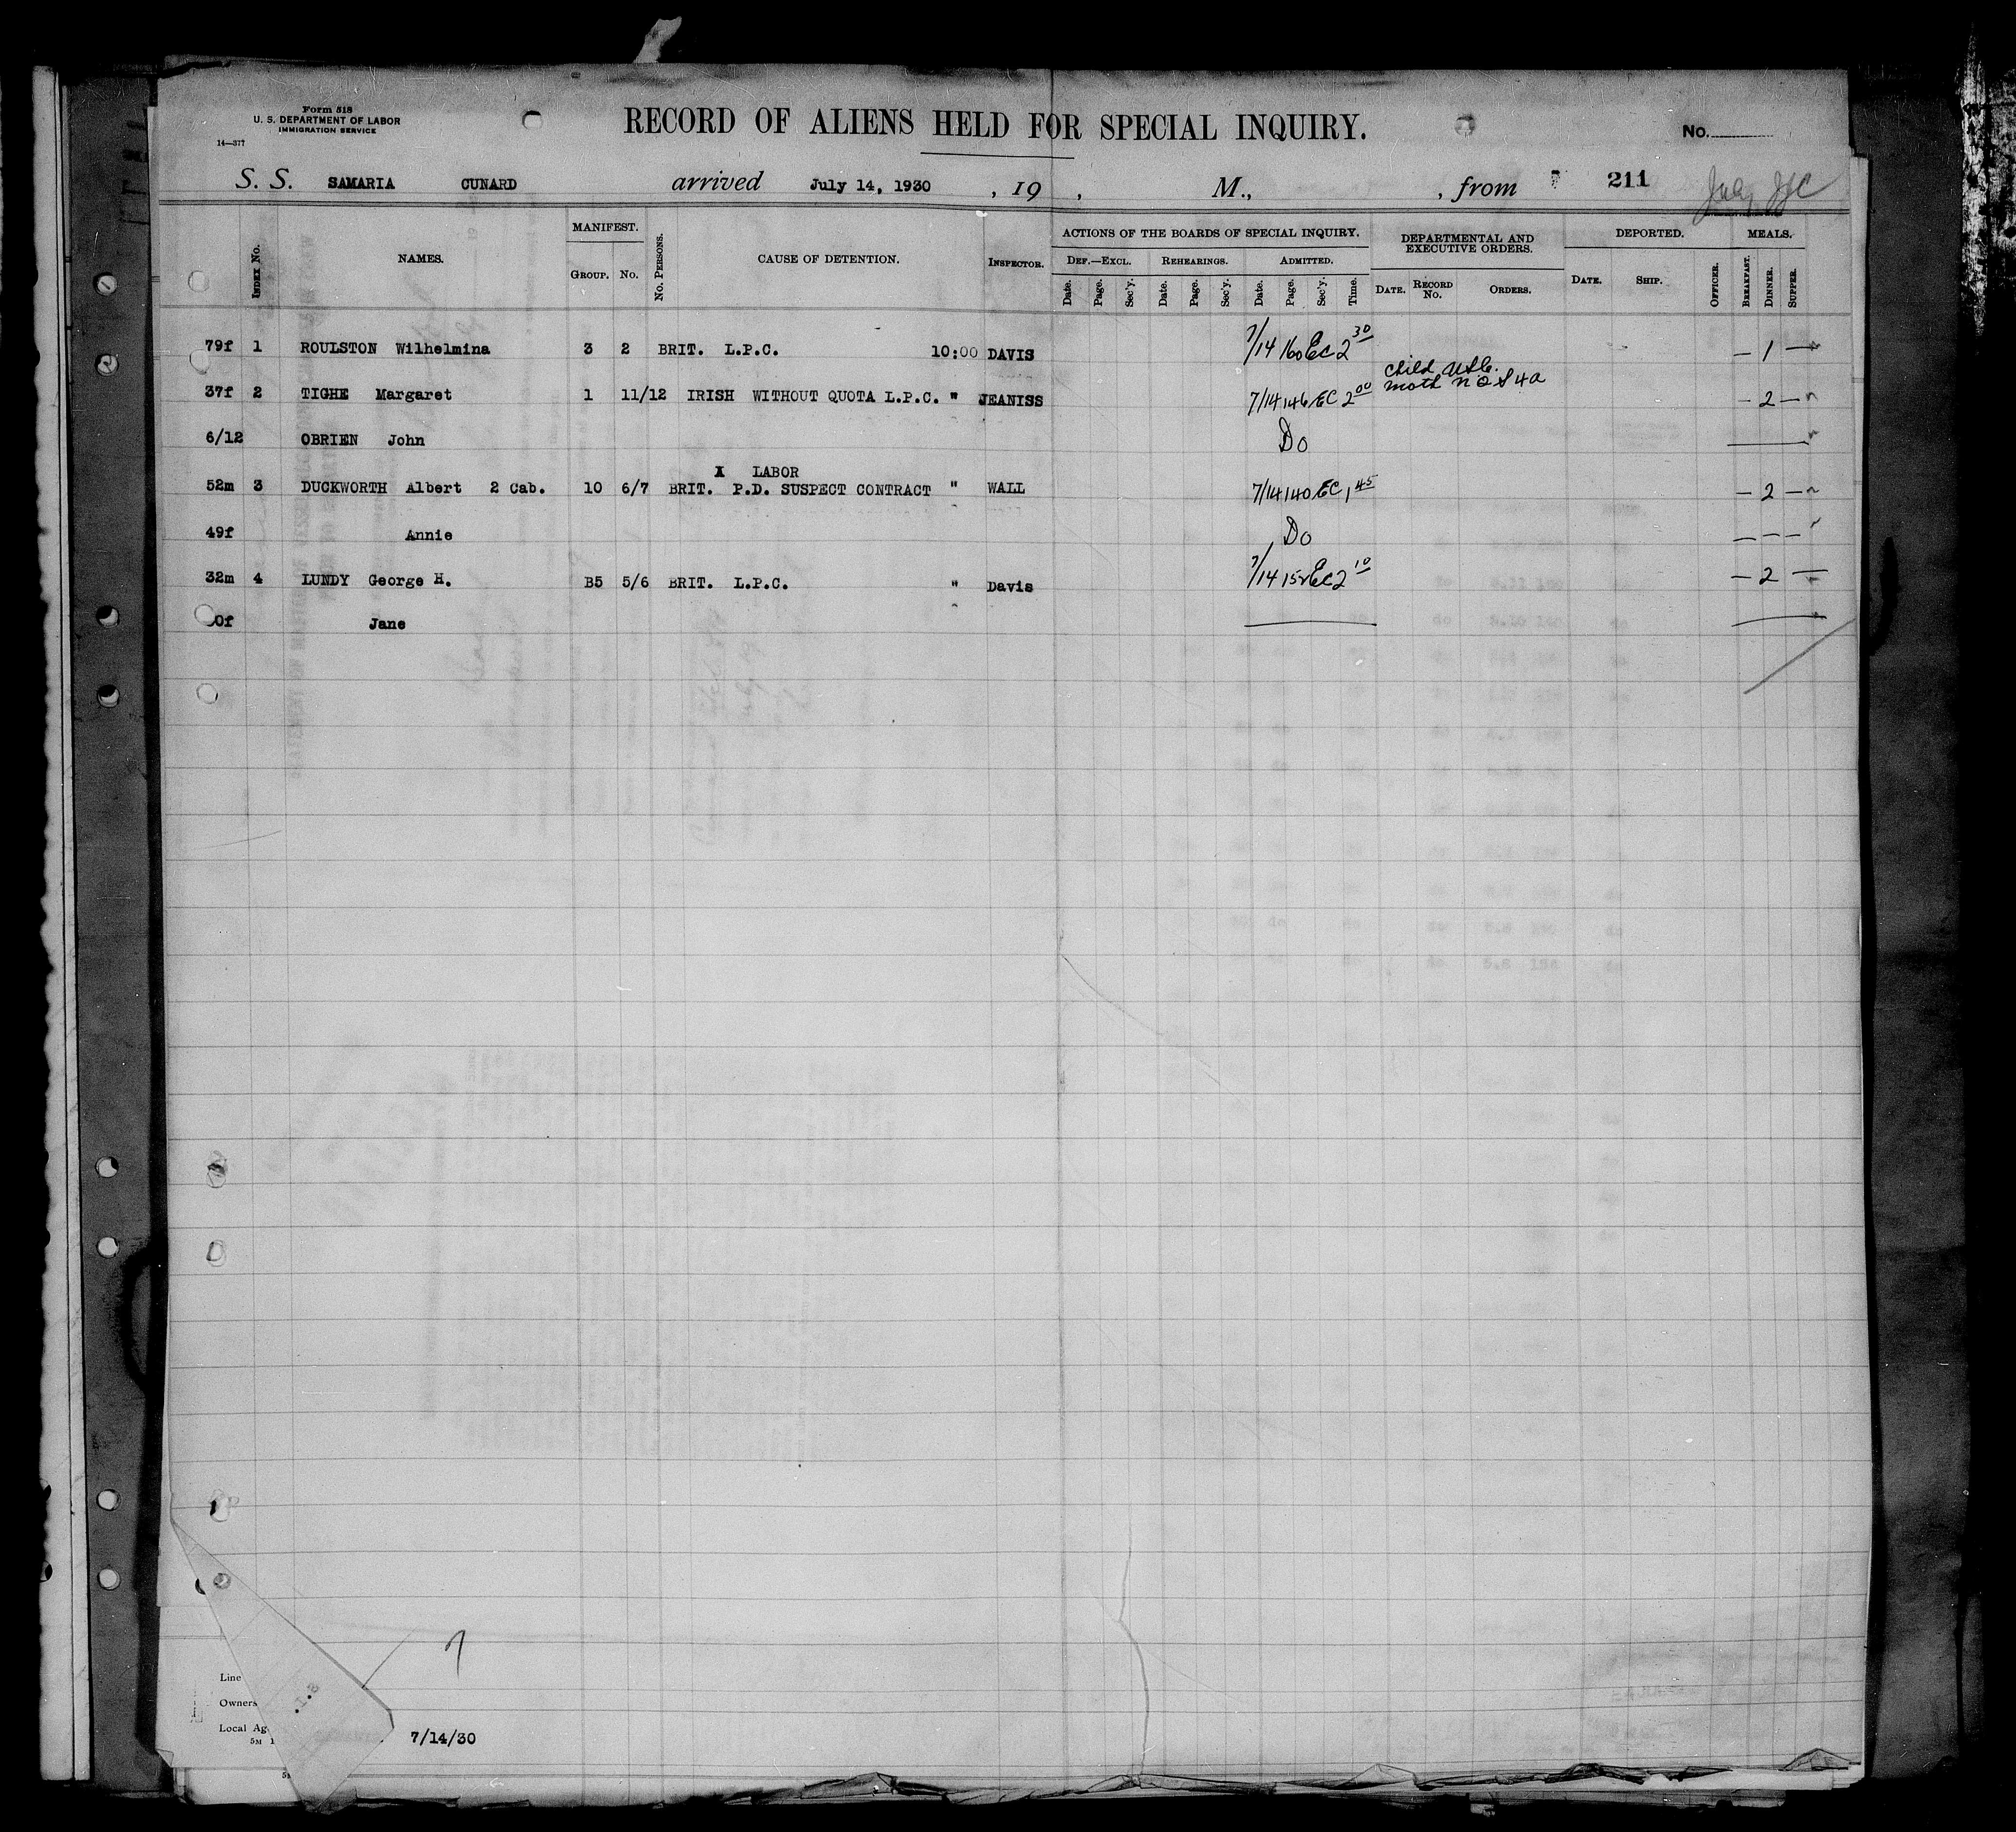 Form 518
U. S. DEPARTMENT OF LABOR
IMMIGRATION SERVICE
14—377
RECORD OF ALIENS HELD FOR SPECIAL INQUIRY.
No.
S. S. SAMARIA CUNARD arrived July 14, 1930 , 19 , M., , from 211
INDEX No. NAMES. MANIFEST. GROUP. No. No. PERSONS. CAUSE OF DETENTION. INSPECTOR.
ACTIONS OF THE BOARDS OF SPECIAL INQUIRY. DEF.—EXCL. Date. Page. Sec'y. REHEARINGS. Date. Page. Sec'y. ADMITTED. Date. Page. Sec'y. Time.
DEPARTMENTAL AND EXECUTIVE ORDERS. DATE. RECORD No. ORDERS.
DEPORTED. DATE. SHIP. OFFICER.
MEALS. BREAKFAST. DINNER. SUPPER.
79f 1 ROULSTON Wilhelmina 3 2 BRIT. L.P.C. 10:00 DAVIS 7/14 160 EC 2 30 — 1 —
child USC.
moth N Q S 4a
37f 2 TIGHE Margaret 1 11/12 IRISH WITHOUT QUOTA L.P.C. " JEANISS 7/14 146 EC 2 00 — 2 —
6/12 OBRIEN John Do
X LABOR
52m 3 DUCKWORTH Albert 2 Cab. 10 6/7 BRIT. P.D. SUSPECT CONTRACT " WALL 7/14 140 EC 1 45 — 2 —
49f Annie Do — — —
32m 4 LUNDY George H. B5 5/6 BRIT. L.P.C. " Davis 7/14 152 EC 2 10 — 2 —
0f Jane
7
Line
Owners
Local Ag
5M 1
7/14/30